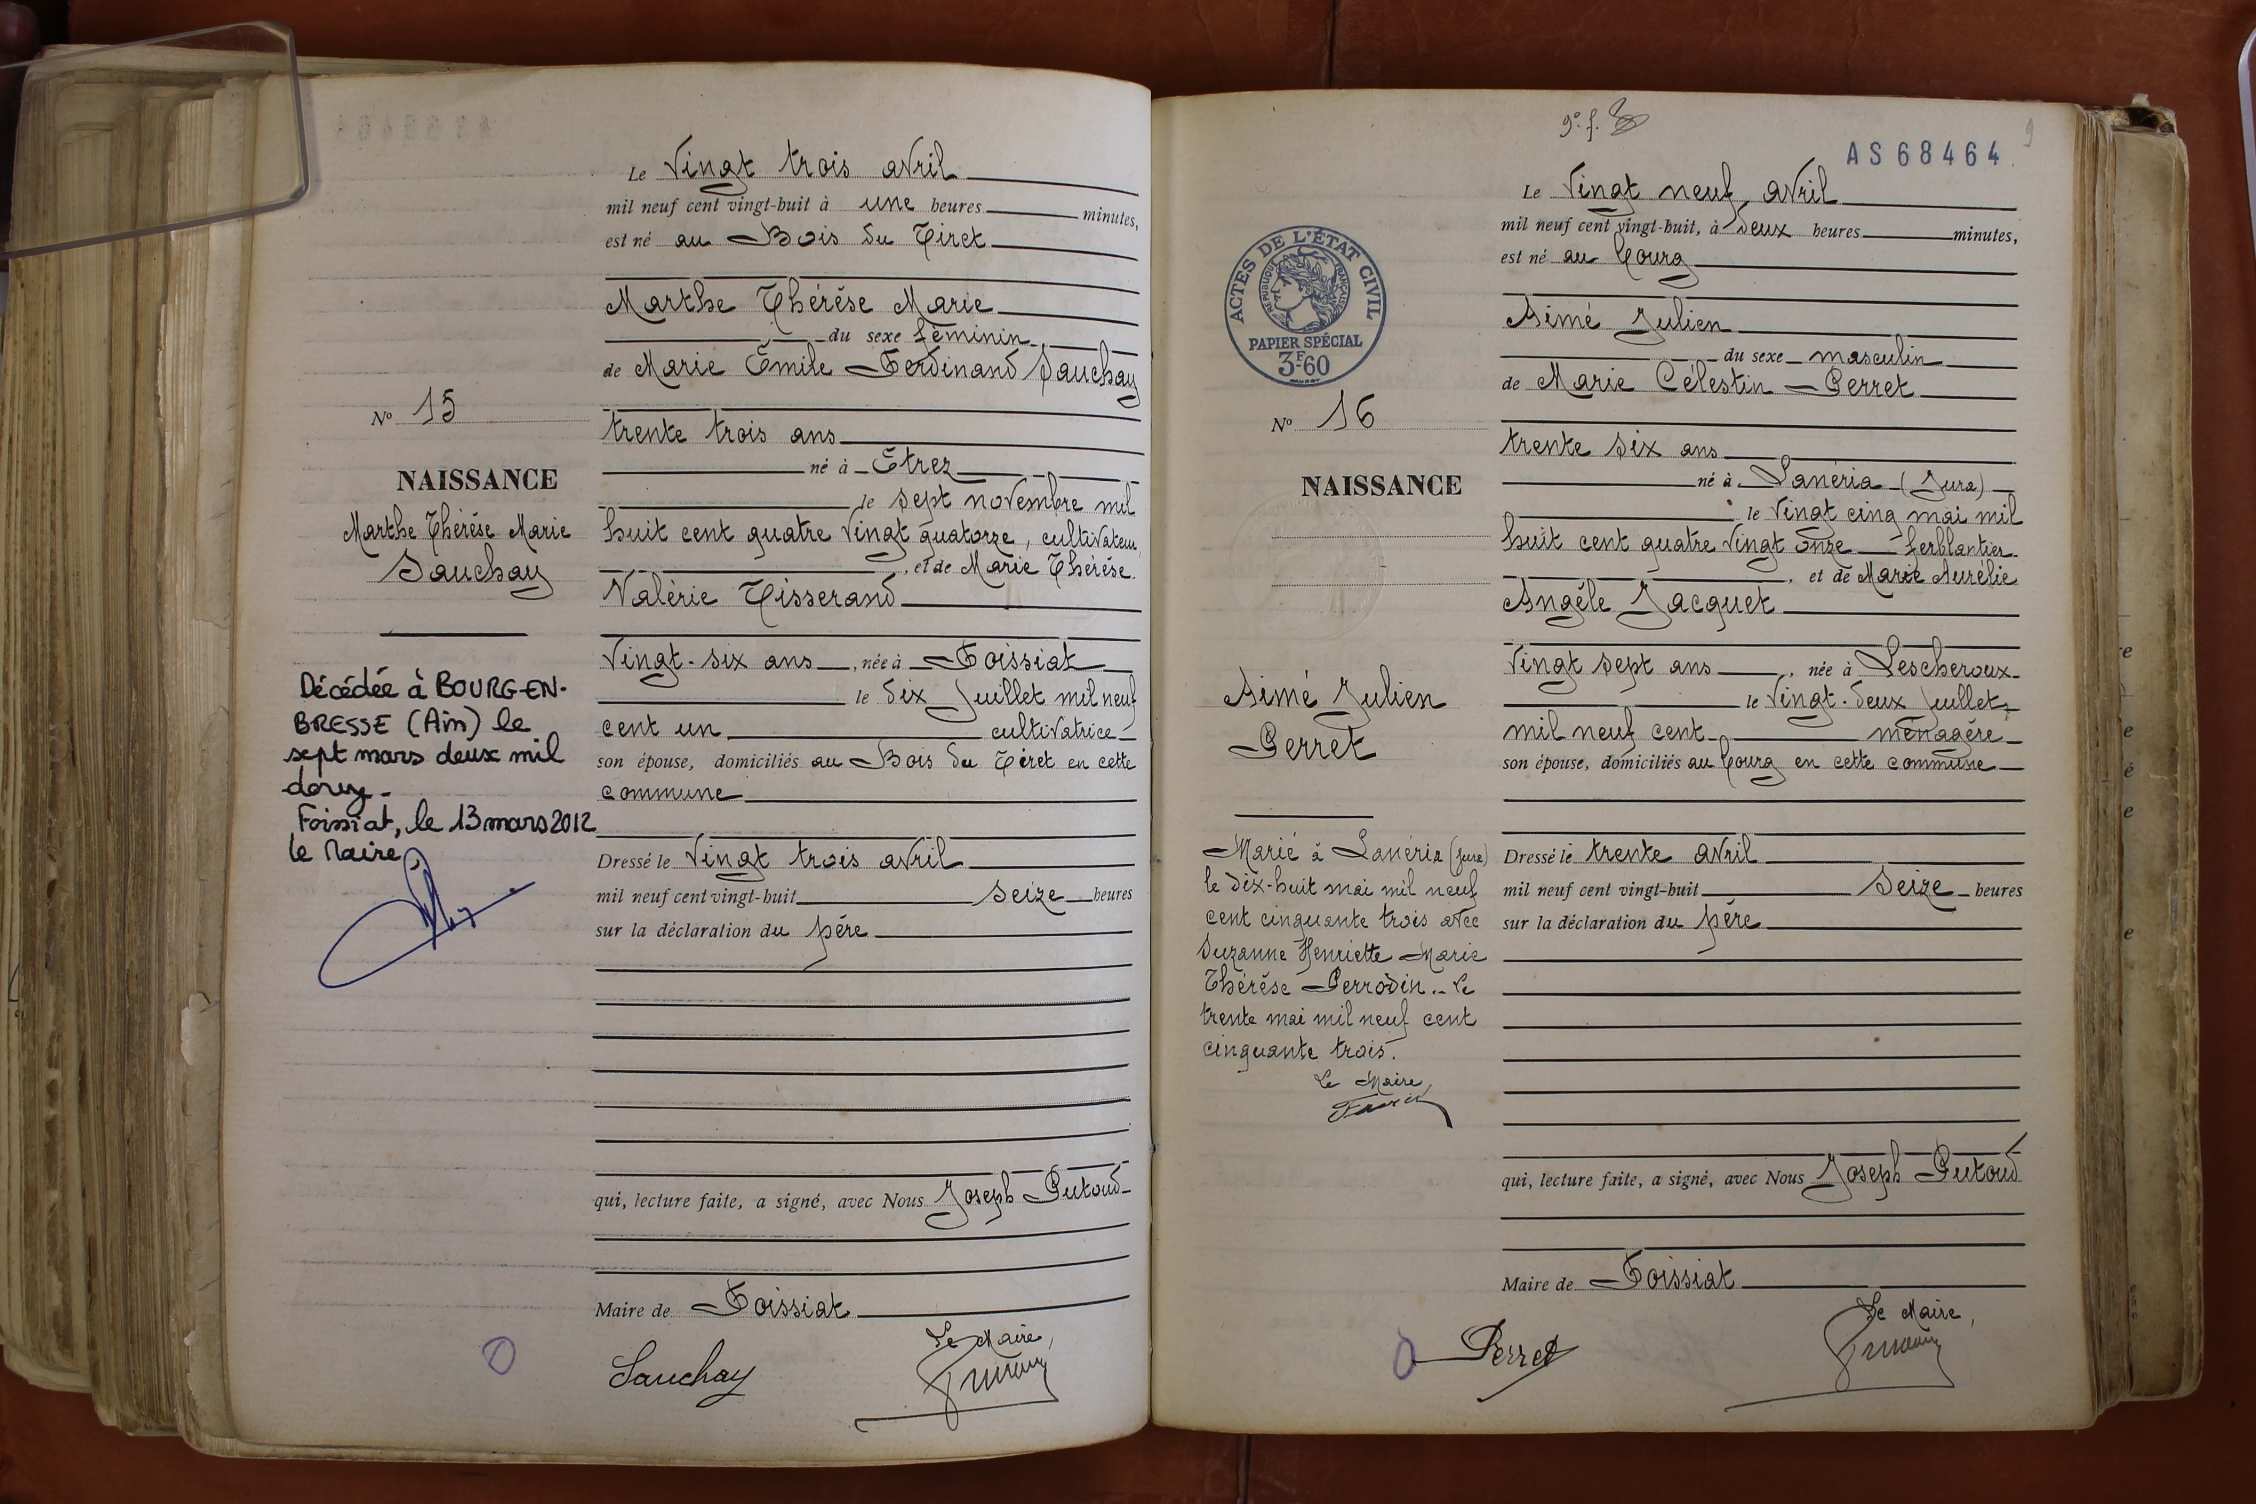 Le Vingt trois avril
mil neuf cent vingt-huit à une heures minutes,
est né au Bois du Tiret
Marthe Thérèse Marie
du sexe féminin
de Marie Émile Ferdinand Sauchay
trente trois ans
né à Étrez
le sept novembre mil
huit cent quatre vingt quatorze, cultivateur
, et de Marie Thérèse
Valérie Tisserand
Vingt-six ans, née à Foissiat
le dix Juillet mil neuf
cent un cultivatrice
son épouse, domiciliés au Bois du Tiret en cette
commune
Dressé le Vingt trois avril
mil neuf cent vingt-huit seize heures
sur la déclaration du père
qui, lecture faite, a signé, avec Nous Joseph Putoud
Maire de Foissiat
Le Maire,
Sauchay
No 15
NAISSANCE
Marthe Thérèse Marie
Sauchay
Décédée à BOURG-EN-
BRESSE (Ain) le
sept mars deux mil
douze.
Foissiat, le 13 mars 2012
Le Maire,
9e. f.
9
AS68464
Le Vingt neuf avril
mil neuf cent vingt-huit, à deux heures minutes,
est né au bourg
Aimé Julien
du sexe masculin
de Marie Célestin Perret
trente six ans
né à Lanéria (Jura)
le Vingt cinq mai mil
huit cent quatre vingt onze ferblantier
, et de Marie Aurélie
Angèle Jacquet
Vingt sept ans, née à Lescheroux
le Vingt-deux Juillet
mil neuf cent ménagère
son épouse, domiciliés au bourg en cette commune
Dressé le trente avril
mil neuf cent vingt-huit seize heures
sur la déclaration du père
qui, lecture faite, a signé, avec Nous Joseph Putoud
Maire de Foissiat
Le Maire,
Perret
ACTES DE L'ÉTAT CIVIL
RÉPUBLIQUE FRANÇAISE
PAPIER SPÉCIAL
3F60
No 16
NAISSANCE
Aimé Julien
Perret
Marié à Lanéria (Jura)
le dix-huit mai mil neuf
cent cinquante trois avec
Suzanne Henriette Marie
Thérèse Perrodin.. Le
trente mai mil neuf cent
cinquante trois.
Le Maire,